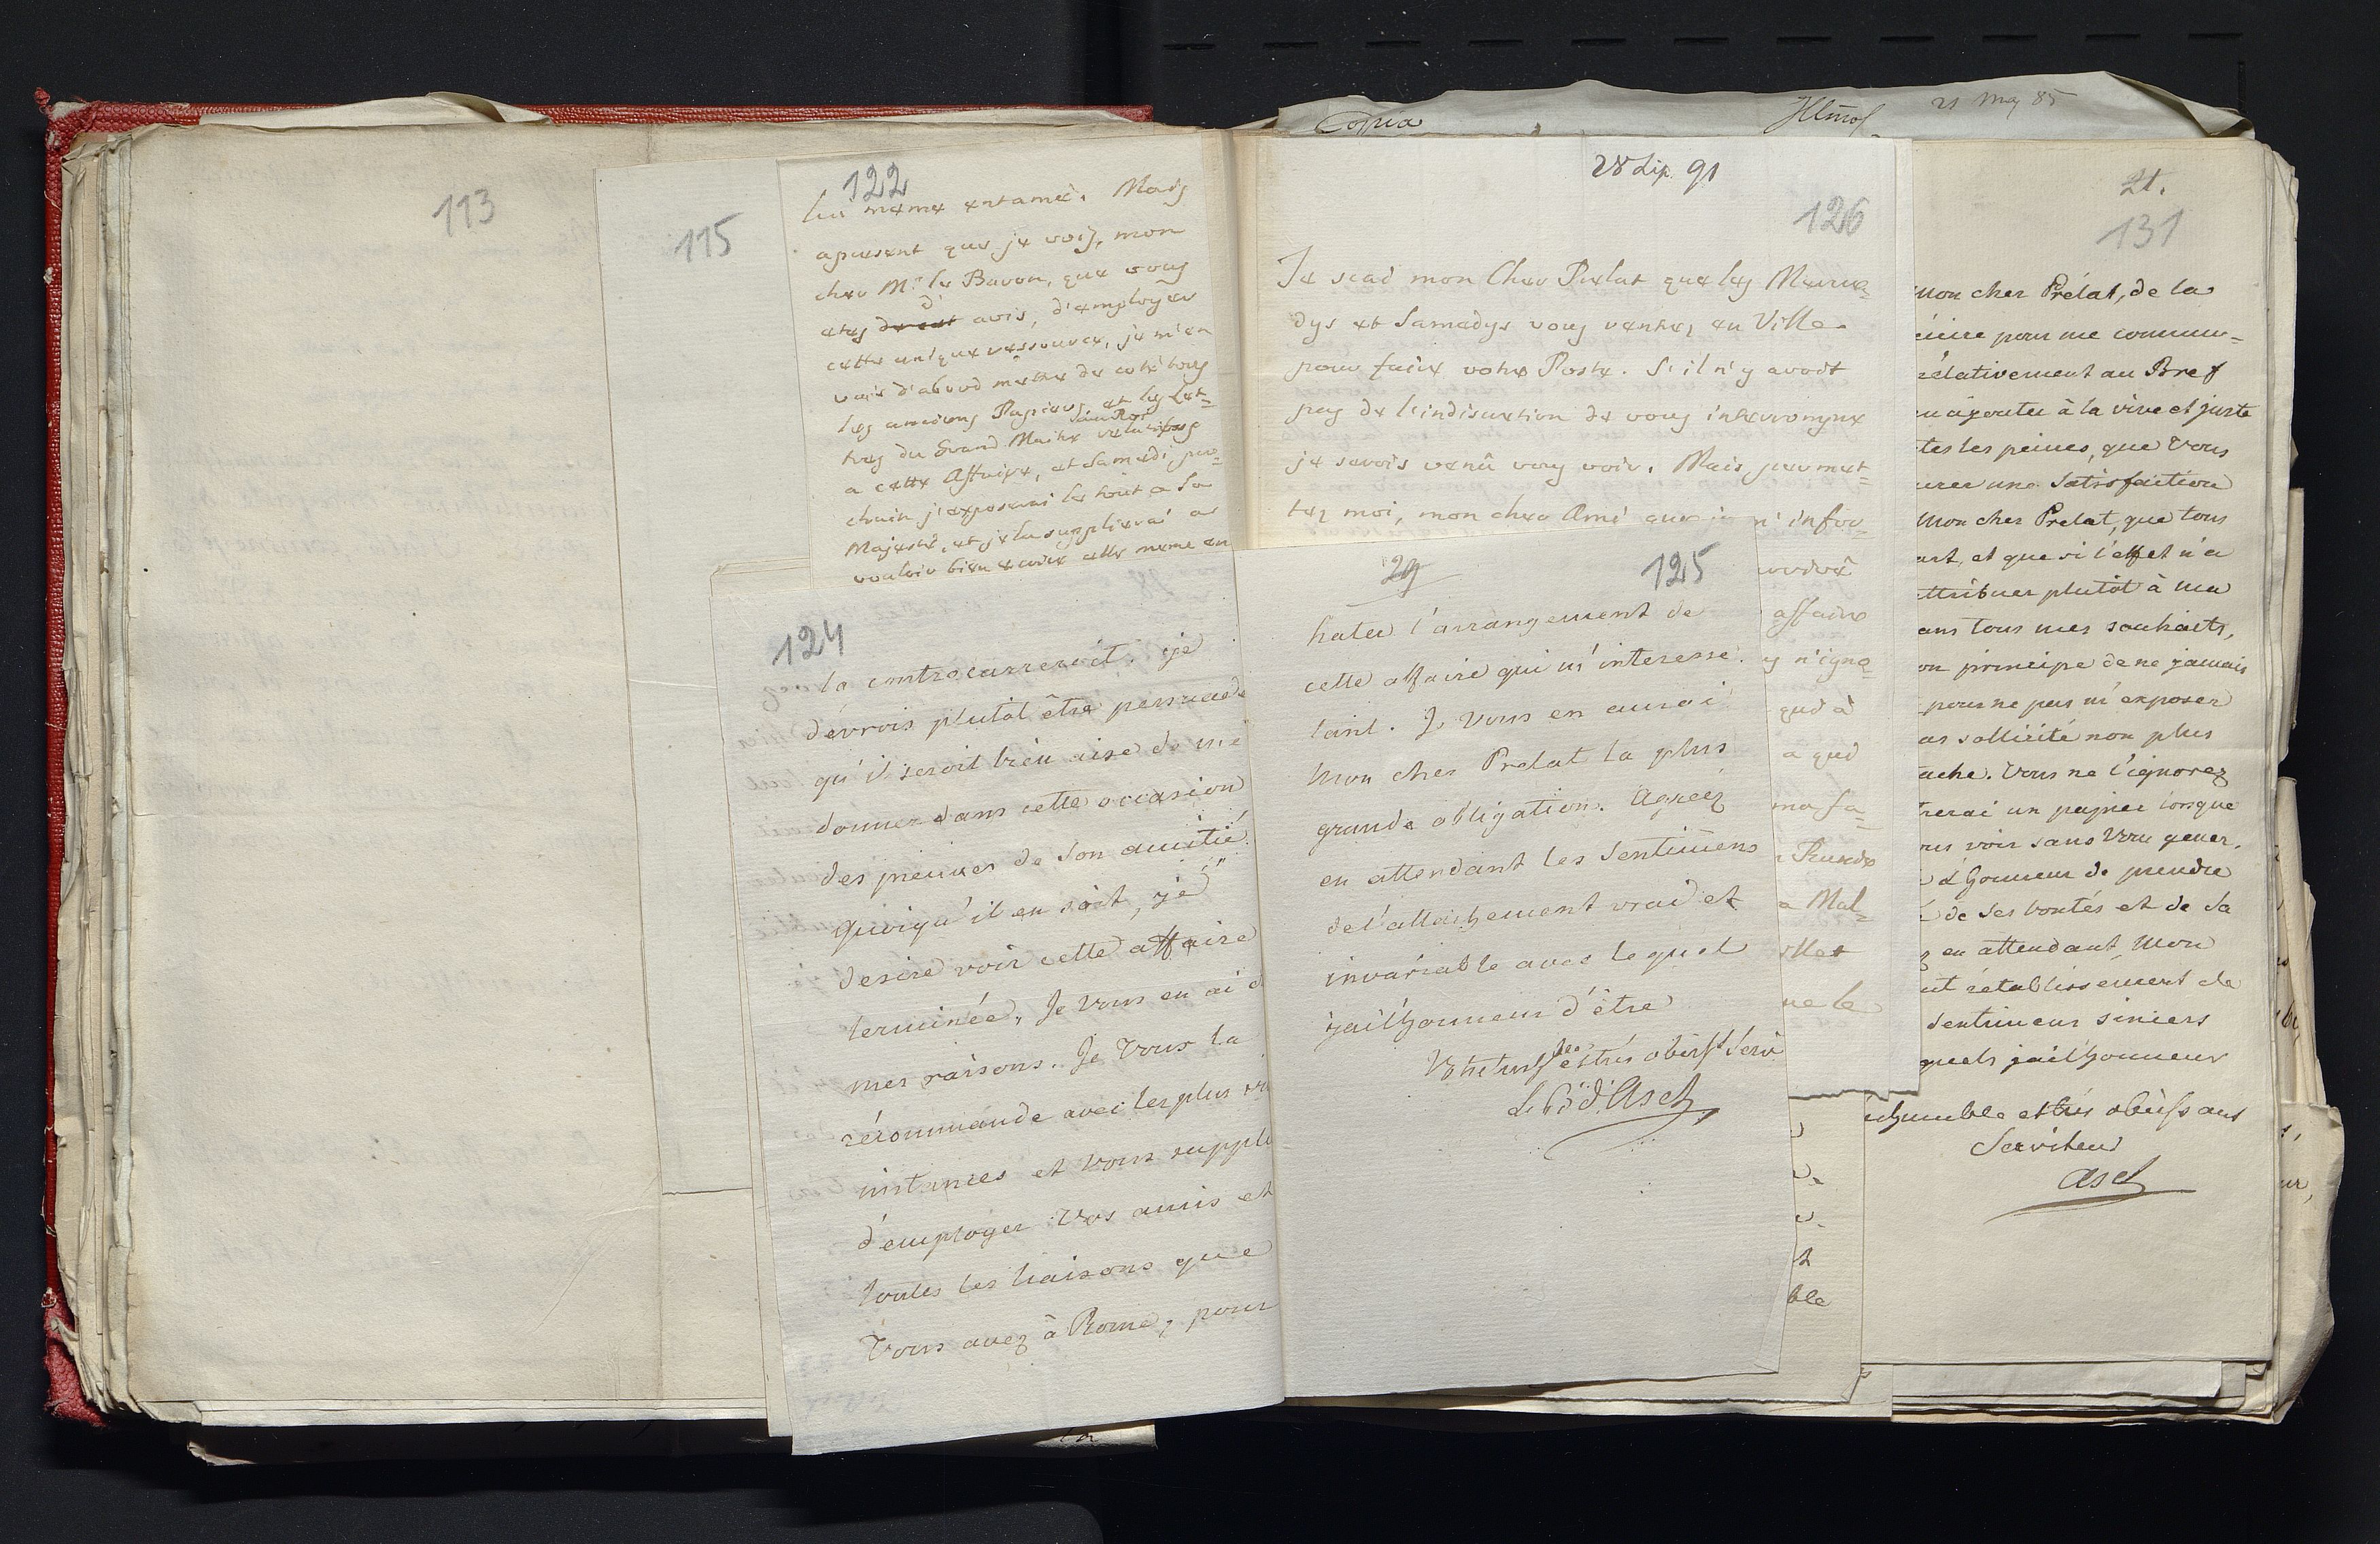 113
115
122
lui meme entamé. Mais
apresent que je vois, mon
cher Mr. le Baron, que vous
d'
etes avis, d'employer
cette unique ressource, je m'en
vais d'abord mettre de coté tous
les anciens Papiers, et les Let=
tres du Grand Maitre relatifs
a cette Affaire, et Samedi pro=
chain j'exposerai le tout a Sa
Majesté, et je la supplierai a
vouloir bien ecrire elle meme en
124
la contrecarreroit. je
dévrois plutôt être persuadé
qu'il seroit bien aise de me
donner dans cette occasion
des preuves de son amitié.
quoiqu'il en soit, je
desire voir cette affaire
terminée. Je Vous en ai d
mes raisons. Je Vous la
récommande avec les plus
instances et Vous suppli
d'employer Vos amis et
toutes les liaisons que
Vous avez à Rome, pour
Copia
21 May 85
28 Lip. 91
126
Je scai mon Cher Prelat que les Mercre=
dys et Samedys vous venez en Ville
pour faire votre Poste. S'il n'y avoit
pas de l'indiscretion de vous interrompre
je serois venû vous voir. Mais permet=
tez moi, mon cher Ami que je n'infor=
affaire
n'igno=
que à
a que
ma fa=
a Mal=
ne le
29
125
hater l'arrangement de
cette affaire qui m'interesse
tant. Je Vous en aurai
Mon cher Prelat la plus
grande obligation. Agréez
en attendant les Sentimens
de l'attachement vrai et
invariable avec lequel
j'ai l'honneur d'être
d'Asch
ble
21.
131
Mon cher Prélat, de la
pour me commu=
rélativement au Bref
ajouter à la vive et juste
tes les peines, que Vous
une Satisfaction
Mon cher Prelat, que tous
art, et que si l'effet n'a
attribuer plutôt à ma
ans tous mes souhaits,
on principe de ne jamais
pour ne pas m'exposer
as sollicité non plus
ache. Vous ne l'ignorez
lorsque
ous voir sans Vous gener.
l'honneur de prendre
de ses bontés et de sa
en attendant, Mon
établissement de
sentimens sinceres
quels j'ai l'honneur
humble et très obéissant
Serviteur
Asch